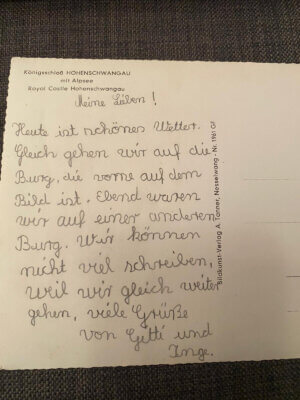 Königsschloß HOHENSCHWANGAU
mit Alpsee
Royal Castle Hohenschwangau
Meine Lieben!
Heute ist schönes Wetter.
Gleich gehen wir auf die
Burg, die vorne auf dem
Bild ist. Ebend waren
wir auf einer anderen
Burg. Wir können
nicht viel schreiben,
weil wir gleich weiter
gehen, viele Grüße
von Gitti und
Inge.
Bildkunst-Verlag A. Tanner, Nesselwang, Nr. 1961 Gf